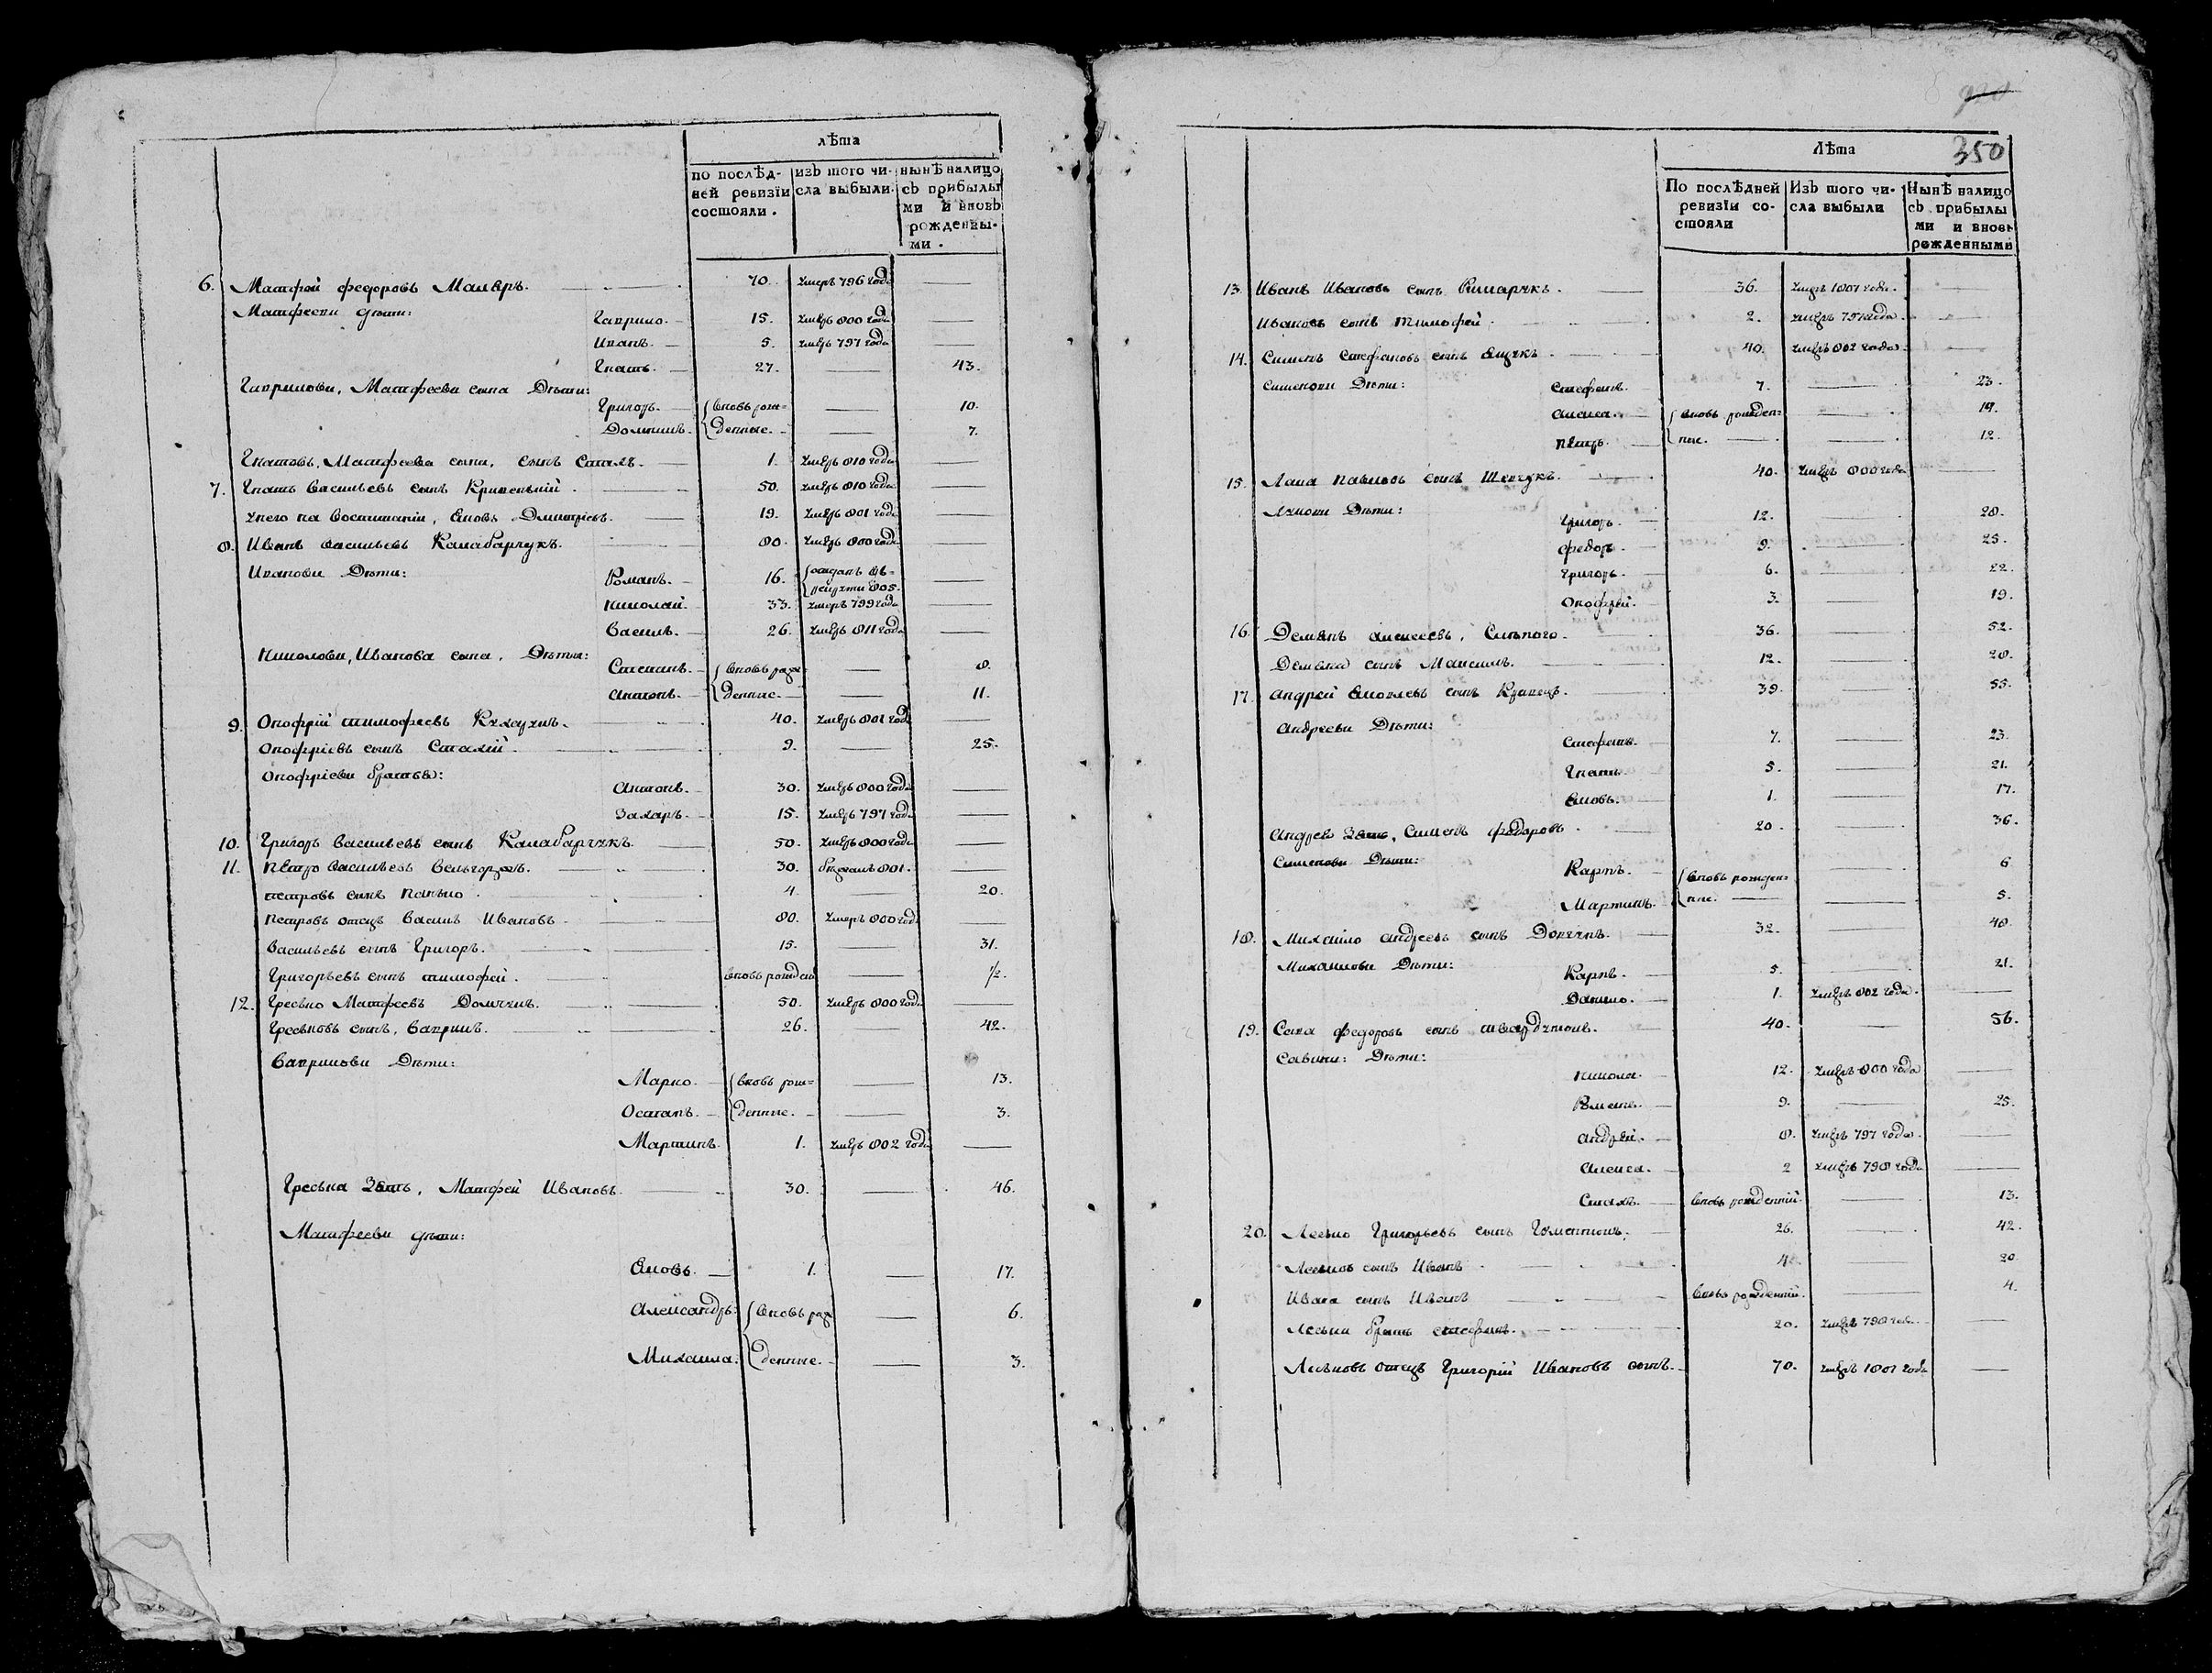 лѣта
по послѣд- изъ того чи- нынѣ налицо
ней ревизїи сла выбыли. съ прибылы
состояли. ми и вновь
рожденны-
ми.
6. Матфей федоровъ Маляръ. 70. умеръ 796 года
Матфееви дѣти:
Гаврило. 15. умеръ 800 года
Иванъ. 5. умеръ 797 года
Гнатъ. 27. 43.
Гаврилови, Матфеева сына Дѣти:
Григоръ. вновь рож= 10.
денные. 7.
Гнатовъ, Матфеева сына, сынъ 1. умеръ 810 года
7. Гнатъ васильевъ сынъ 50. умеръ 810 года
унего на воспитании, Яковъ Дмитріевъ. 19. умеръ 801 года
8. Иванъ васильевъ Калабарчукъ. 80. умеръ 800 года
Иванови Дѣти:
Романъ. 16. отданъ въ
рекруты 805.
Николай. 33. умеръ 799 года
Василь. 26. умеръ 811 года
Николови, Иванова сына, Дѣти:
Степанъ. вновь рож 8.
Антонъ. денные. 11.
9. Онофрій тимофеевъ 40. умеръ 801 года
Онофріевъ сынъ 9. 25.
Онофріеви братья:
Антонъ. 30. умеръ 800 года
Захаръ. 15. умеръ 797 года
10. Григоръ Васильевъ сынъ Калабарчукъ. 50. умеръ 800 года
11. Петро Васильевъ 30. 801.
петровъ сынъ Панько 4. 20.
Петровъ отецъ Василь Ивановъ 80. умеръ 800 года
Васильевъ сынъ Григоръ. 15. 31.
Григорьевъ сынъ тимофей. вновь рожден 1/2.
12. Гресько Матфеевъ 50. умеръ 800 года
Греськовъ сынъ, Гаврилъ. 26. 42.
Гаврилови Дѣти:
Марко. вновь рож= 13.
Остапъ. денные. 3.
Мартинъ. 1. умеръ 802 года
Греська Зять, Матфей Ивановъ 30. 46.
Матфееви дѣти:
Яковъ. 1. 17.
Александръ. вновь рож 6.
Михаила. денные. 3.
350
Лѣта
По послѣдней Изъ того чи- Нынѣ налицо
ревизїи со- сла выбыли съ прибылы
стояли ми и вновь
рожденными
13. Иванъ Ивановъ сынъ Римарчукъ. 36. умеръ 1801 года.
Ивановъ сынъ тимофей. 2. умеръ года.
14. Сименъ Стефановъ сынъ 40. умеръ 802 года
Сименови Дѣти:
Стефанъ. 7. 23.
Алекса. вновь рожден= 19.
Петръ. ные. 12.
15. Лаца павловъ сынъ Шевчукъ. 40. умеръ 800 года
Дѣти:
Григоръ. 12. 28.
федоръ. 9. 25.
Григоръ. 6. 22.
Онофрей. 3. 19.
16. Демянъ алексеевъ, 36. 52.
Демяна сынъ Максимъ. 12. 28.
17. Андрей Яковлевъ сынъ Кравецъ. 39. 55.
Андрееви Дѣти:
Стефанъ. 7. 23.
Гнатъ. 5. 21.
Яковъ. 1. 17.
Андрея Зять, Сименъ Федоровъ 20. 36.
Сименови Дѣти:
Карпъ. вновь рожден= 6
Мартинъ. ные. 5.
18. Михайло андреевъ сынъ 32. 48.
Михайлови Дѣти:
Карпъ. 5. 21.
Данило. 1. умеръ 802 года.
19. Сава федоровъ сынъ 40. 56.
Савини: Дѣти:
Никола. 12. умеръ 800 года
Романъ. 9. 25.
Андрей. 8. умеръ 797 года.
Алекса. 2 умеръ 798 года
вновь рожденній. 13.
20. Лесько Григорьевъ сынъ 26. 42.
Леськовъ сынъ Иванъ 4. 20
Ивана сынъ Иванъ вновь рожденній. 4.
Леська братъ стефанъ. 20. умеръ 798 год.
Леськовъ отецъ Григорій Ивановъ сынъ. 70. умеръ 1801 года